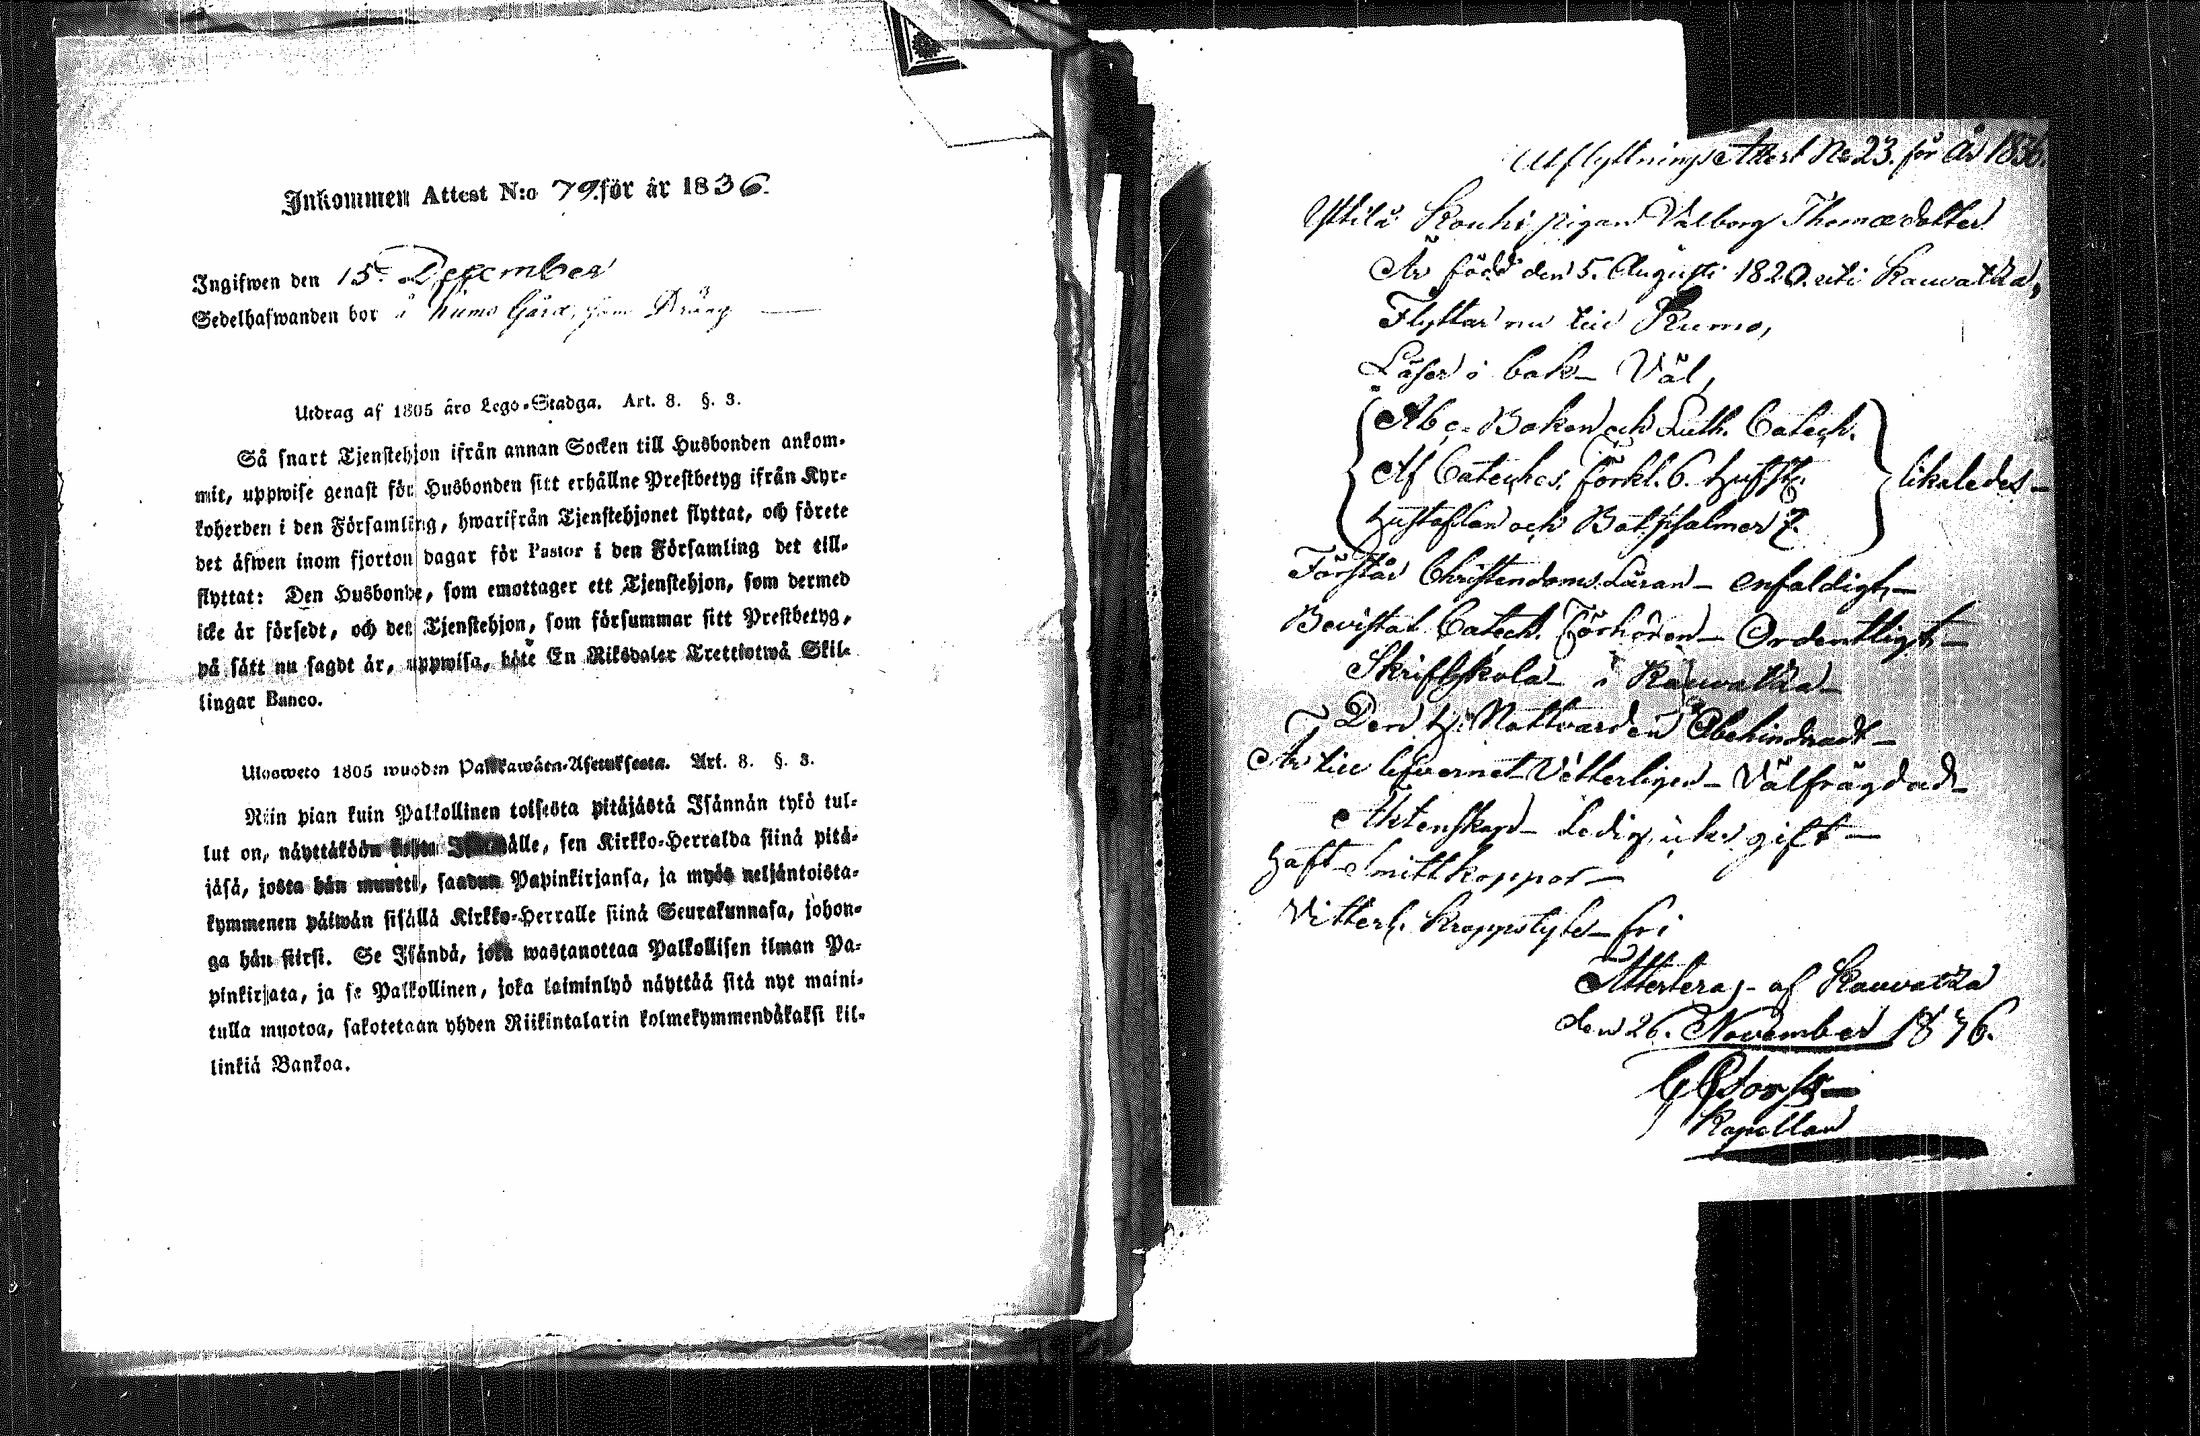 Inkommen Attest N:o 79. för år 1836.
Ingifwen den 15 December
Sedelhafwanden bor å Kumo Gård, som Dräng
Utdrag af 1805 års Lego-Stadga. Art. 8. §. 3.
Så snart Tjenstehjon ifrån annan Socken till Husbonden ankom-
mit, uppwise genast för Husbonden sitt erhållne Prestbetyg ifrån Kyr-
koherden i den Församling, hwarifrån Tjenstehjonet flyttat, och förete
det äfwen inom fjorton dagar för Pastor i den Församling det till-
flyttat: Den Husbonde, som emottager ett Tjenstehjon, som dermed
icke är försedt, och det Tjenstehjon, som försummar sitt Prestbetyg,
på sätt nu sagdt är, uppwisa, böte En Riksdaler Trettiotwå Skil-
lingar Banco.
Ulosweto 1805 wuoden Palkkawäen-Asetuksesta. Art. 8. §. 3.
Niin pian kuin Palkollinen toisesta pitäjästä Isännän tykö tul-
lut on, näyttäköön Isännälle, sen Kirkko-Herralda siinä pitä-
jäsä, josta hän muutti, saadun Papinkirjansa, ja myös neljäntoista-
kymmenen päiwän sisällä Kirkko-Herralle siinä Seurakunnasa, johon-
ga hän siirsi. Se Isändä, joka wastanottaa Palkollisen ilman Pa-
pinkirjata, ja se Palkollinen, joka laiminlyö näyttää sitä nyt maini-
tulla muotoa, sakotetaan yhden Riikintalarin kolmekymmendäkaksi kil-
linkiä Bankoa.
Utflyttnings Attest No 23. för år 1836.
Yttilä Kouhi pigan Valborg Thomædotter
Är född den 5. Augusti 1820. uti Kauvatka,
Flyttar nu till Kumo,
Läser i bok – Väl,
Abc-Boken och Luth. Catech.
Af Cateches. Förkl. 6. Hufst.
Hustaflan och Botpsalmer 7.
likaledes –
Förstår Christendoms Läran – enfaldigt –
Bevistat Catech. Förhören – Ordentligt –
Skriftskola – i Kauvatka –
Den H. Nattvarden Obehindradt –
Är till lefvernet Vitterligen – Välfrägdad –
Äktenskap – Ledig ifrån gift –
Haft Smittkoppor –
Vitterl. Kroppslyte – fri
Attesteras – af Kauvatka
den 26. November 1836.
Kapellan